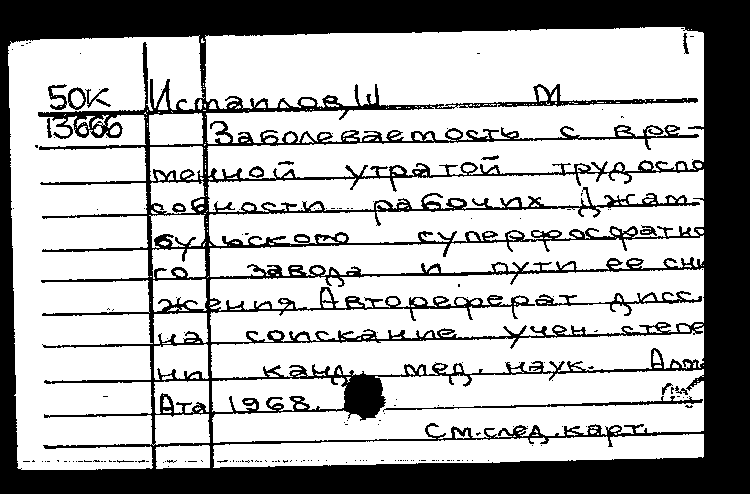 50К Исмаилов, Ш М
13666 Заболеваемость с вре-
менной утратой трудоспо
собности рабочих Джам-
бульского суперфосфатно
го завода и пути ее сни
жения Автореферат дисс.
на соискание учен. степе
ни канд. мед. наук. Алма
Ата, 1968.
См.след.карт.